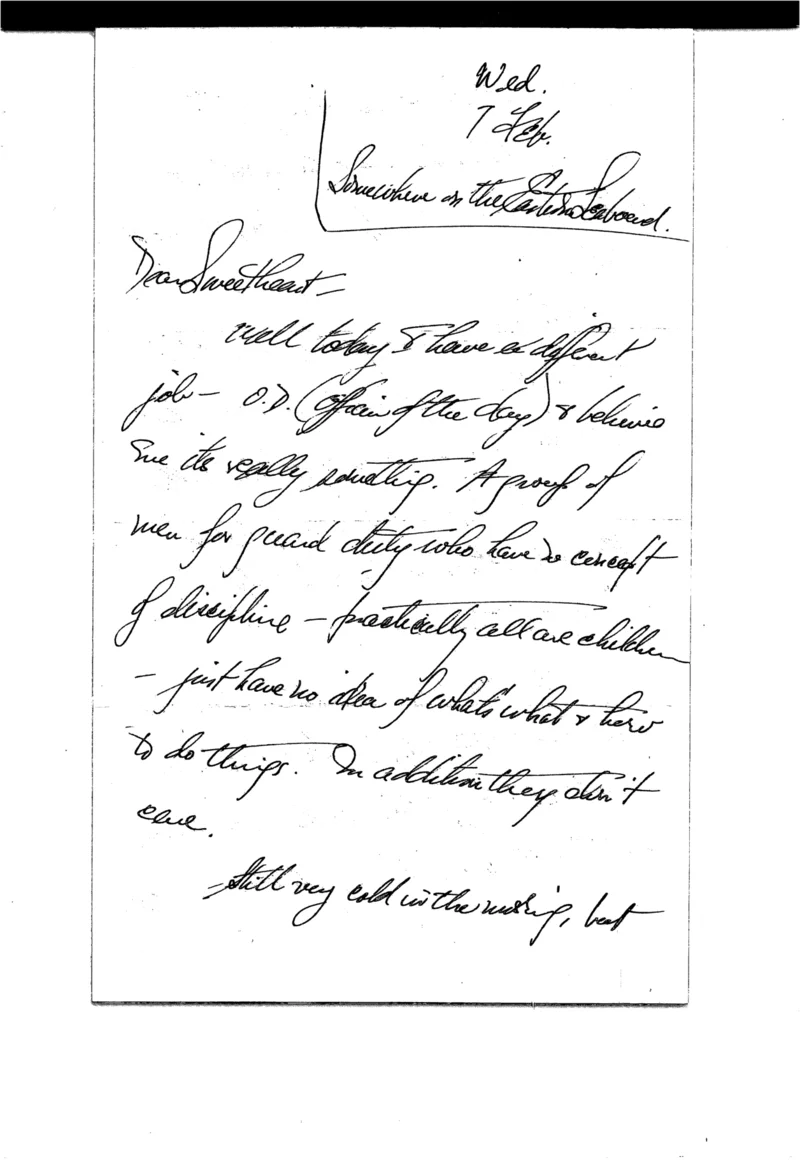 Wed.
7 Feb.
Somewhere on the Eastern Seaboard.
Dear Sweetheart —
Well today I have a different
job — O.D. (officer of the day) & believe
me its really something. A group of
men for guard duty who have no concept
of discipline — practically all are children
— just have no idea of what's what & how
to do things. In addition they don't
care.
Still very cold in the morning, but